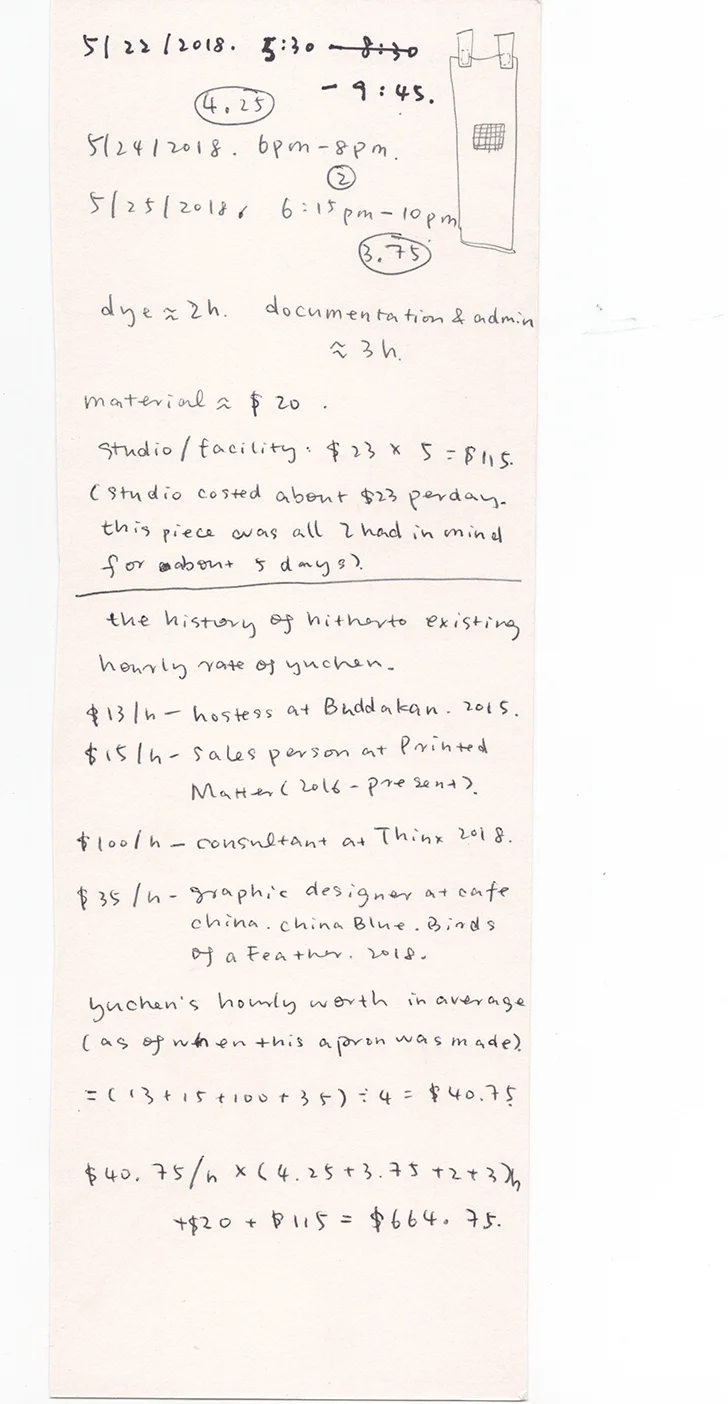 5/22/2018. 5:30 – 8:30
– 9:45.
4.25
5/24/2018. 6pm – 8pm.
2
5/25/2018. 6:15pm – 10pm
3.75
dye ≈ 2h. documentation & admin
≈ 3h.
material ≈ $20.
studio/facility: $23 × 5 = $115.
(studio costed about $23 perday.
this piece was all I had in mind
for about 5 days).
the history of hitherto existing
hourly rate of yuchen.
$13/h – hostess at Buddakan. 2015.
$15/h – sales person at Printed
Matter (2016 – present).
$100/h – consultant at Thinx 2018.
$35/h – graphic designer at cafe
china. china Blue. Birds
of a Feather. 2018.
yuchen's hourly worth in average
(as of when this apron was made).
= (13 + 15 + 100 + 35) ÷ 4 = $40.75
$40.75/h × (4.25 + 3.75 + 2 + 3)h
+ $20 + $115 = $664.75.